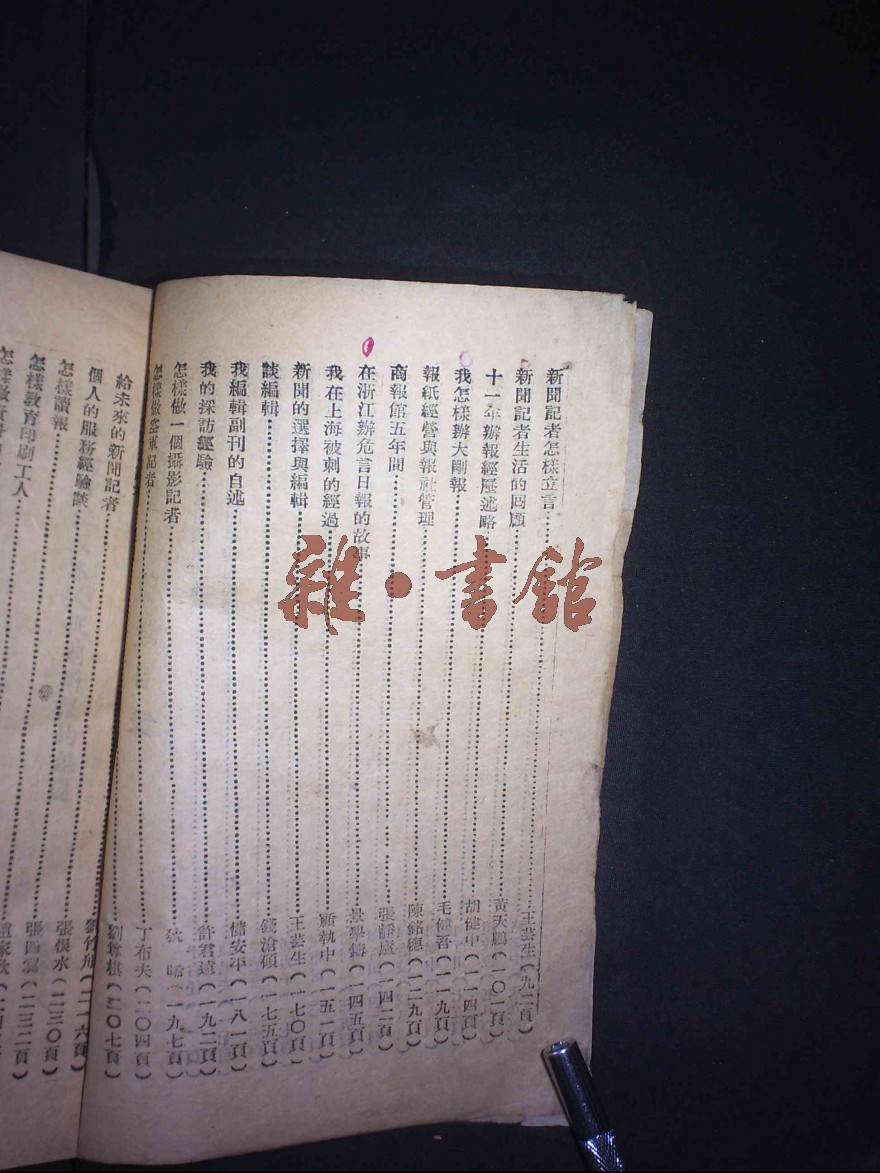 新聞記者怎樣立言⋯⋯王芸生(九二頁)
新聞記者生活的回顧⋯⋯黃天鵬(一〇一頁)
十一年辦報經歷述略⋯⋯胡健中(一一四頁)
我怎樣辦大剛報⋯⋯毛健吾(一一九頁)
報紙經營與報社管理⋯⋯陳銘德(一二九頁)
商報館五年間⋯⋯張靜廬(一四二頁)
在浙江辦危言日報的故事⋯⋯景學鑄(一四五頁)
我在上海被刺的經過⋯⋯顧執中(一五一頁)
新聞的選擇與編輯⋯⋯王芸生(一七〇頁)
談編輯⋯⋯錢滄碩(一七五頁)
我編輯副刊的自述⋯⋯儲安平(一八一頁)
我的採訪經驗⋯⋯許君遠(一九二頁)
怎樣做一個攝影記者⋯⋯狄(一九七頁)
怎樣做空軍記者⋯⋯丁布夫(二〇四頁)
給未來的新聞記者⋯⋯劉尊棋(二〇七頁)
個人的服務經驗談⋯⋯劉竹舟(二一六頁)
怎樣讀報⋯⋯張恨水(二三〇頁)
怎樣教育印刷工人⋯⋯張西(二三二頁)
怎樣做
雜·書館